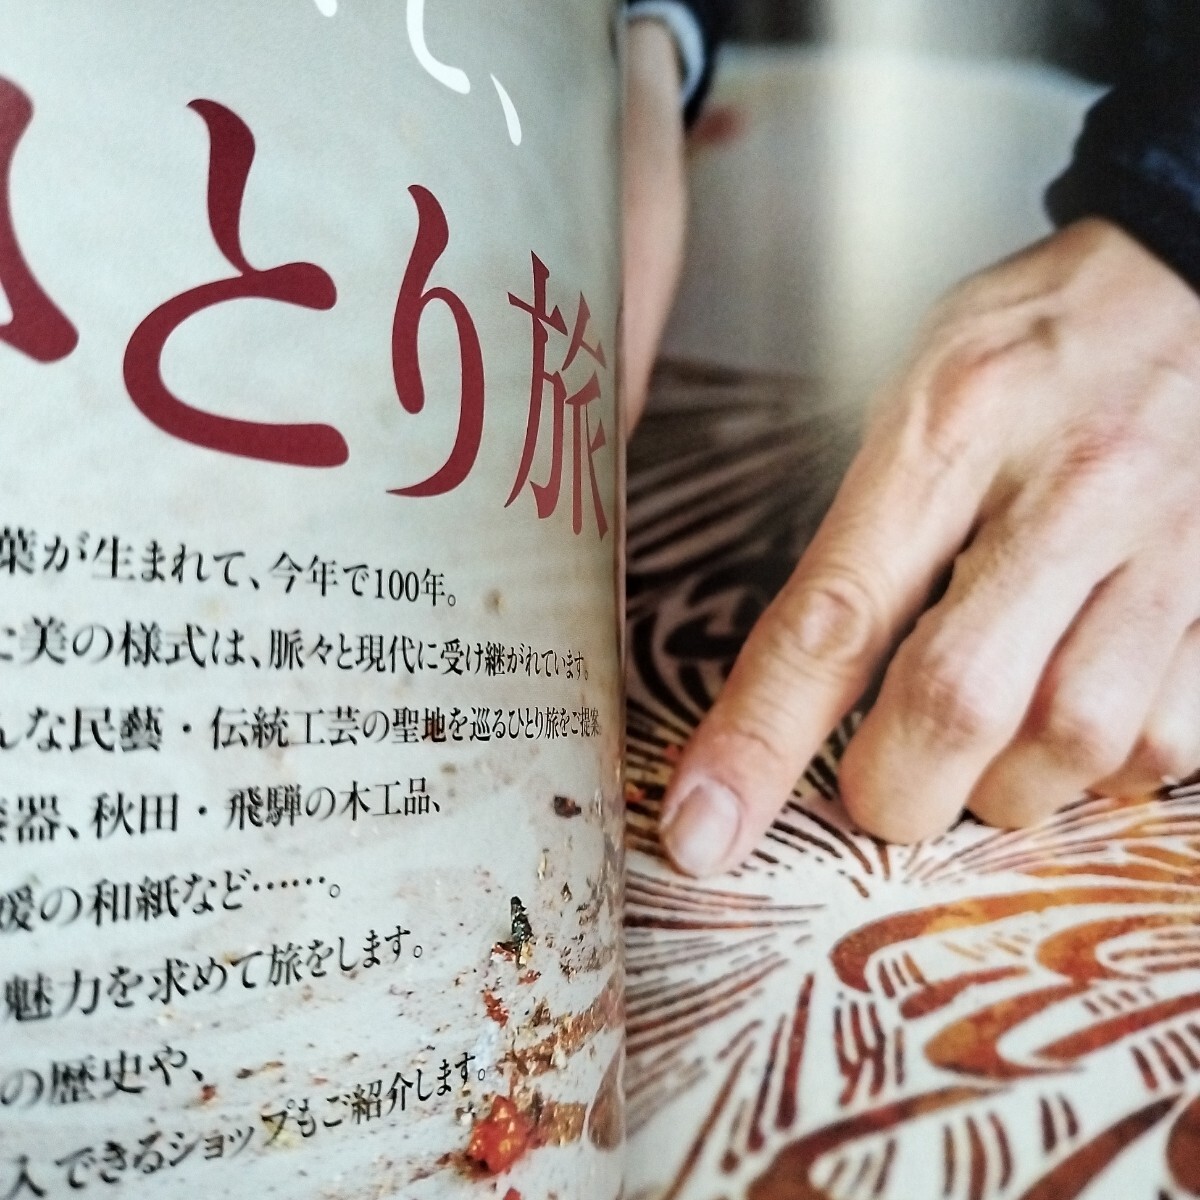 て、
ひとり旅
葉が生まれて、今年で100年。
た美の様式は、脈々と現代に受け継がれています。
んな民藝・伝統工芸の聖地を巡るひとり旅をご提案
漆器、秋田・飛騨の木工品、
媛の和紙など……。
魅力を求めて旅をします。
の歴史や、
入できるショップもご紹介します。